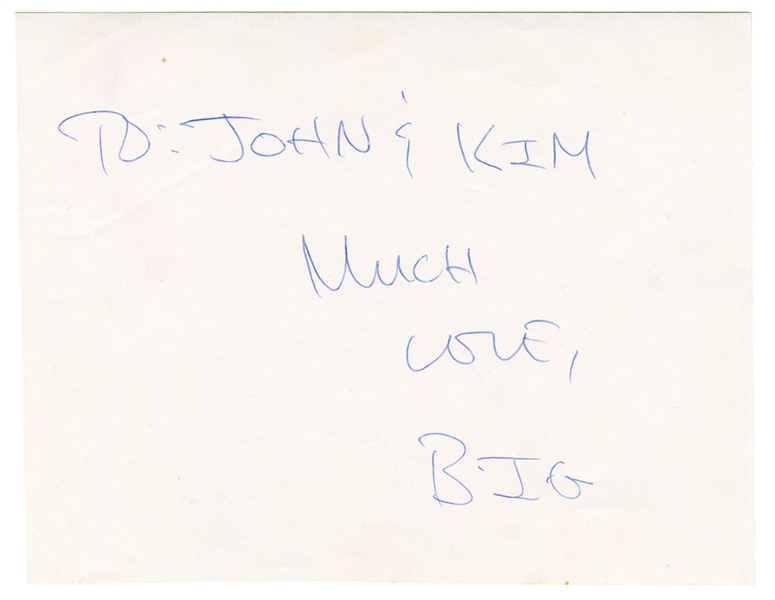 TO: JOHN & KIM
MUCH
LOVE,
BIG